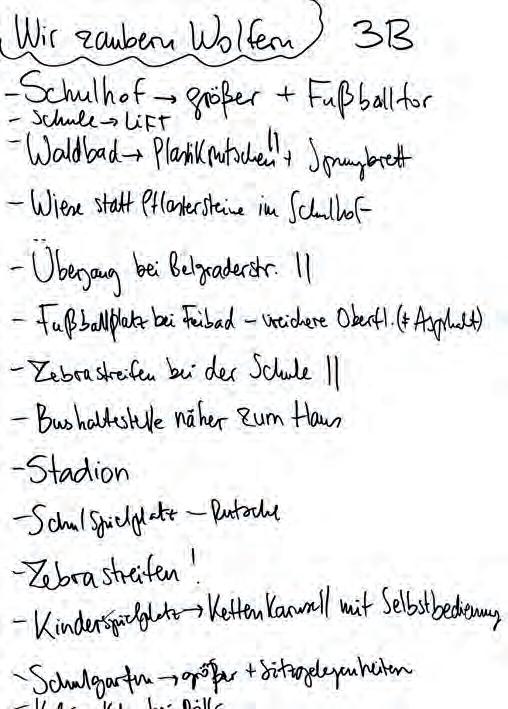 Wir zaubern Wolfern 3B
- Schulhof → größer + Fußballtor
- Schule → LIFT
- Waldbad → Plastikrutschen || + Sprungbrett
- Wiese statt Pflastersteine im Schulhof
- Übergang bei Belgraderstr. ||
- Fußballplatz bei Feibad - weichere Oberfl. (≠ Asphalt)
- Zebrastreifen bei der Schule ||
- Bushaltestelle näher zum Haus
- Stadion
- Schulspielplatz - Rutsche
- Zebrastreifen !
- Kinderspielplatz → Kettenkarusell mit Selbstbedienung
- Schulgarten → größer + Sitzgelegenheiten